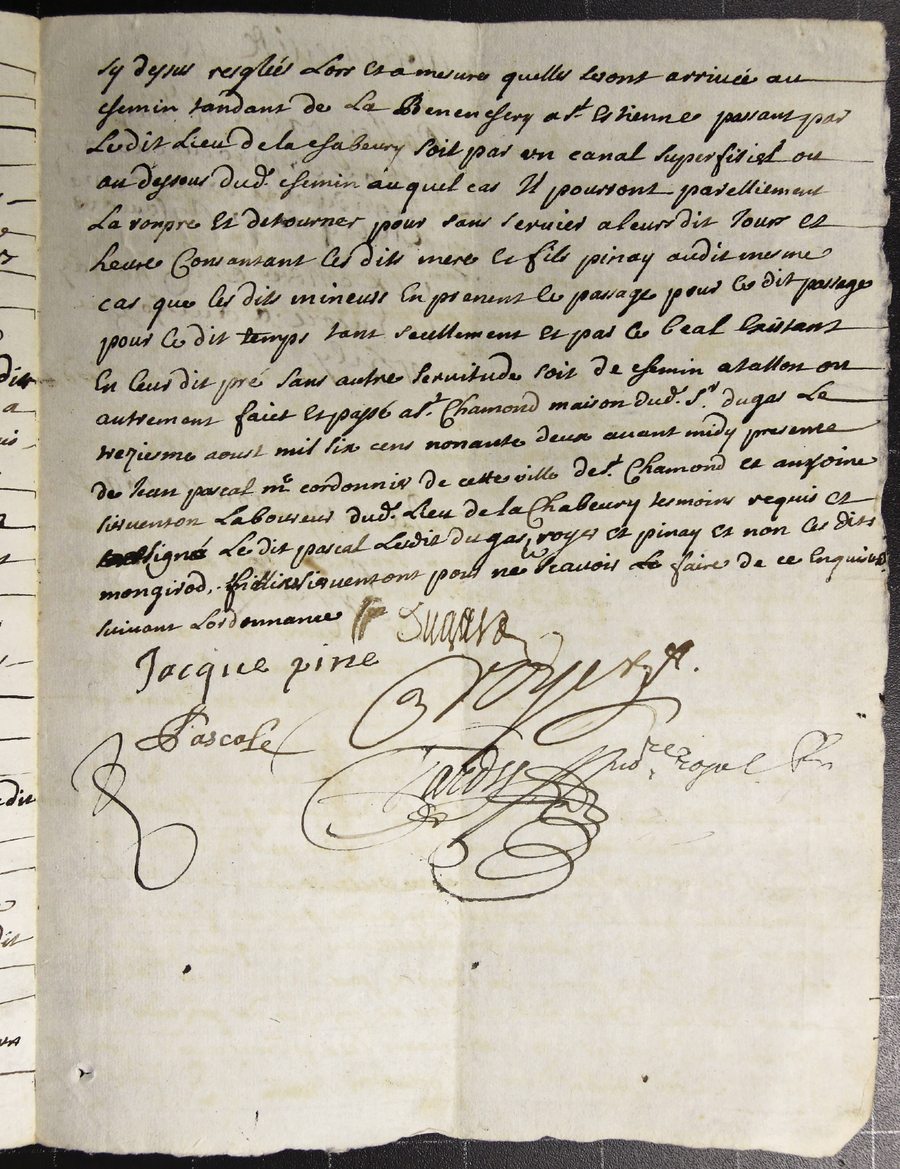 sy dessus resglées Lors et a mesure quelles seront arrivée au
chemin tandant de La Benenchery a st. Estienne passant par
Le dit Lieu de la chabeury soit par un canal superfisiel ou
au dessous dud. chemin auquel cas Il pourront parelliement
La rompre et detourner pour sans servier a leursdit Jours et
heure Consantant les dits mere et fils pinay audit mesme
cas que les dits mineurs En prenent le passage pour le dit passage
pour le dit temps tant seullement et par le beal Existant
En leur dit pré sans autre servitude soit de chemin a tallon ou
autrement faict et passé a st. Chamond maison dud. sr. dugas Le
treziesme aoust mil six cens nonante deux avant midy presente
de Jean pascal mr. cordonnier de cette ville de st. Chamond et anthoine
sirventon Laboureur dud. Lieu de la Chabeury tesmoins requis et
signé Le dit pascal Ledit dugas, royer et pinay et non les dits
mongirod, sirventont pour ne scavoir Le faire de ce Enquis
suivant Lordonnance
Dugas
Jacque pine
royer
Pascale
Tardy no.re Royal